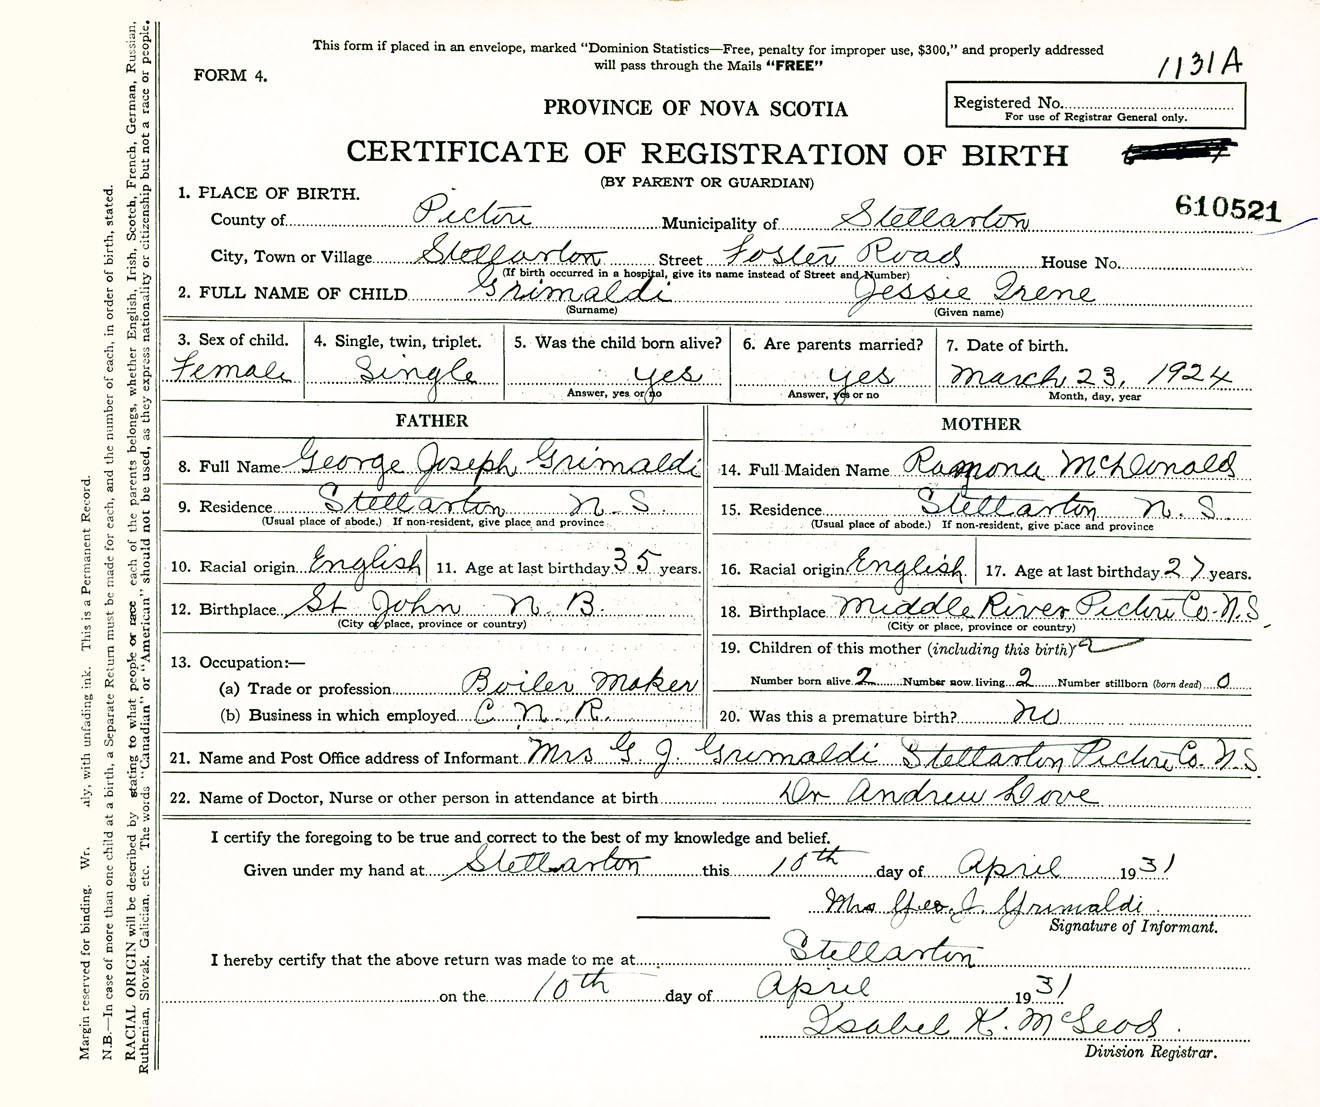 This form if placed in an envelope, marked "Dominion Statistics—Free, penalty for improper use, $300," and properly addressed
will pass through the Mails "FREE"
1131A
FORM 4.
PROVINCE OF NOVA SCOTIA
Registered No.
For use of Registrar General only.
CERTIFICATE OF REGISTRATION OF BIRTH
(BY PARENT OR GUARDIAN)
610521
1. PLACE OF BIRTH.
County of Pictou Municipality of Stellarton
City, Town or Village Stellarton Street Foster Road House No.
(If birth occurred in a hospital, give its name instead of Street and Number)
2. FULL NAME OF CHILD Grimaldi Jessie Irene
(Surname) (Given name)
3. Sex of child. 4. Single, twin, triplet. 5. Was the child born alive? 6. Are parents married? 7. Date of birth.
Female Single yes yes March 23, 1924
Answer, yes or no Answer, yes or no Month, day, year
FATHER MOTHER
8. Full Name George Joseph Grimaldi 14. Full Maiden Name Ramona McDonald
9. Residence Stellarton N.S. 15. Residence Stellarton N.S.
(Usual place of abode.) If non-resident, give place and province (Usual place of abode.) If non-resident, give place and province
10. Racial origin English 11. Age at last birthday 35 years. 16. Racial origin English 17. Age at last birthday 27 years.
12. Birthplace St John N.B. 18. Birthplace Middle River Pictou Co. N.S.
(City or place, province or country) (City or place, province or country)
19. Children of this mother (including this birth) 2
13. Occupation:—
(a) Trade or profession Boiler Maker Number born alive 2 Number now living 2 Number stillborn (born dead) 0
(b) Business in which employed C.N.R. 20. Was this a premature birth? no
21. Name and Post Office address of Informant Mrs G. J. Grimaldi Stellarton Pictou Co. N.S
22. Name of Doctor, Nurse or other person in attendance at birth Dr Andrew Love
I certify the foregoing to be true and correct to the best of my knowledge and belief.
Given under my hand at Stellarton this 10th day of April 1931
Mrs Geo. J. Grimaldi
Signature of Informant.
I hereby certify that the above return was made to me at Stellarton
on the 10th day of April 1931
Isabel K. McLeod.
Division Registrar.
Margin reserved for binding. Wr. aly, with unfading ink. This is a Permanent Record.
N.B.—In case of more than one child at a birth, a Separate Return must be made for each, and the number of each, in order of birth, stated.
RACIAL ORIGIN will be described by stating to what people or race each of the parents belongs, whether English, Irish, Scotch, French, German, Russian,
Ruthenian, Slovak, Galician, etc. The words "Canadian" or "American" should not be used, as they express nationality or citizenship but not a race or people.